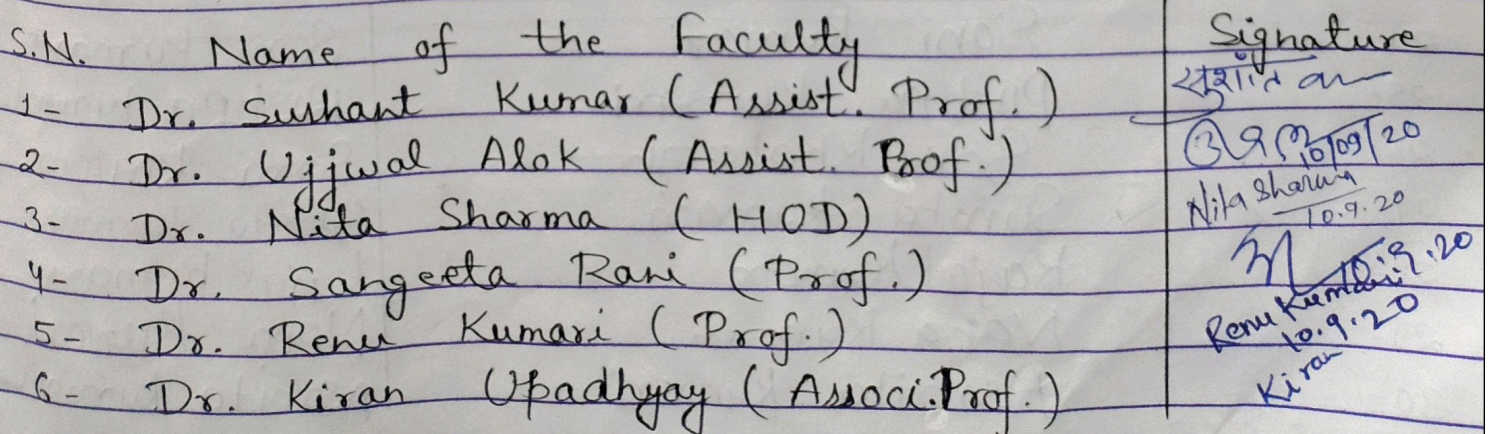 S.N. Name of the Faculty Signature
1- Dr. Sushant Kumar (Assist. Prof.) सुशांत
2- Dr. Ujjwal Alok (Assist. Prof.) 10/09/20
3- Dr. Nita Sharma (HOD) Nita Sharma 10.9.20
4- Dr. Sangeeta Rani (Prof.) 10.9.20
5- Dr. Renu Kumari (Prof.) Renu Kumari 10.9.20
6- Dr. Kiran Upadhyay (Associ.Prof.) Kiran